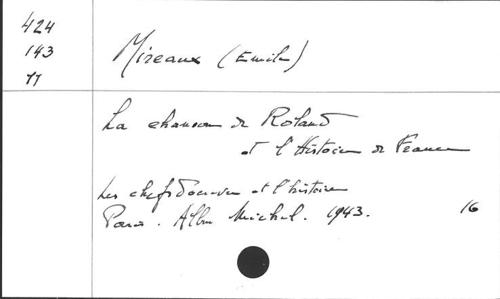 424
143
11
Mireaux (Emile)
La chanson de Roland
et l'Histoire de France
Les chefs d'oeuvre et l'histoire
Paris. Albin Michel. 1943. 16